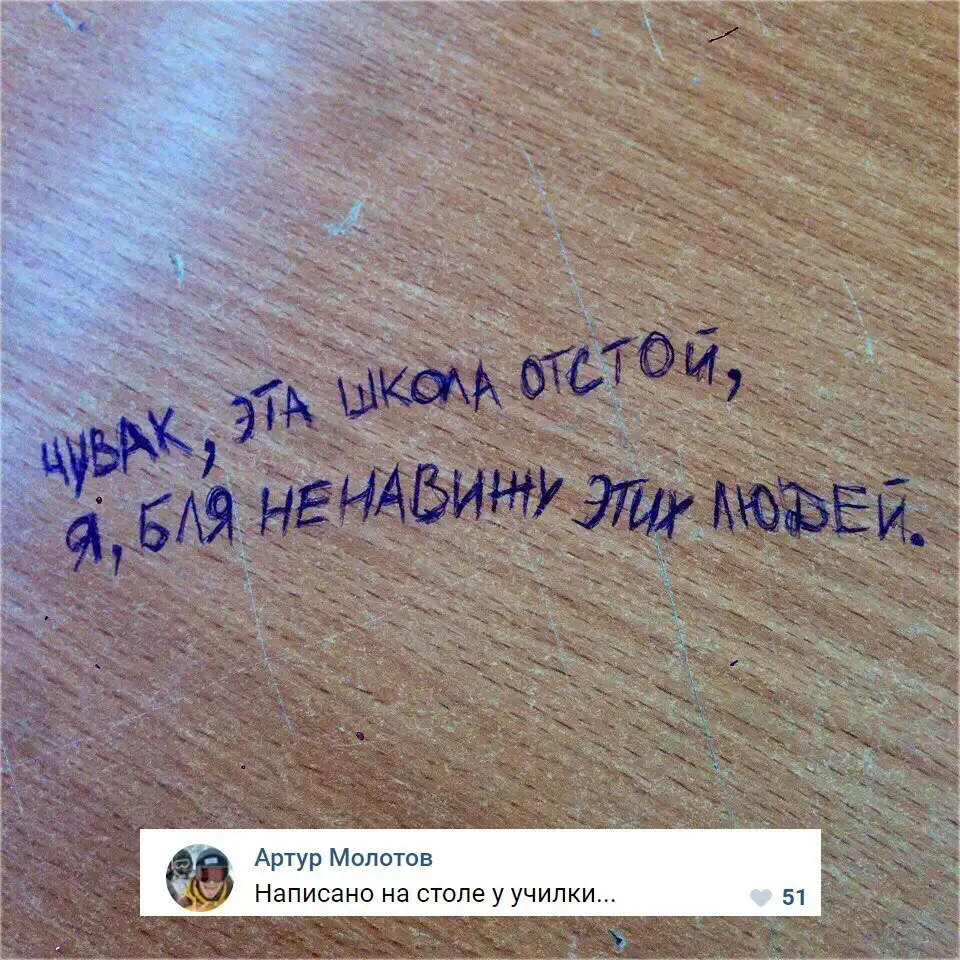 ЧУВАК, ЭТА ШКОЛА ОТСТОЙ,
Я, БЛЯ НЕНАВИЖУ ЭТИХ ЛЮДЕЙ.
Артур Молотов
Написано на столе у училки...
51